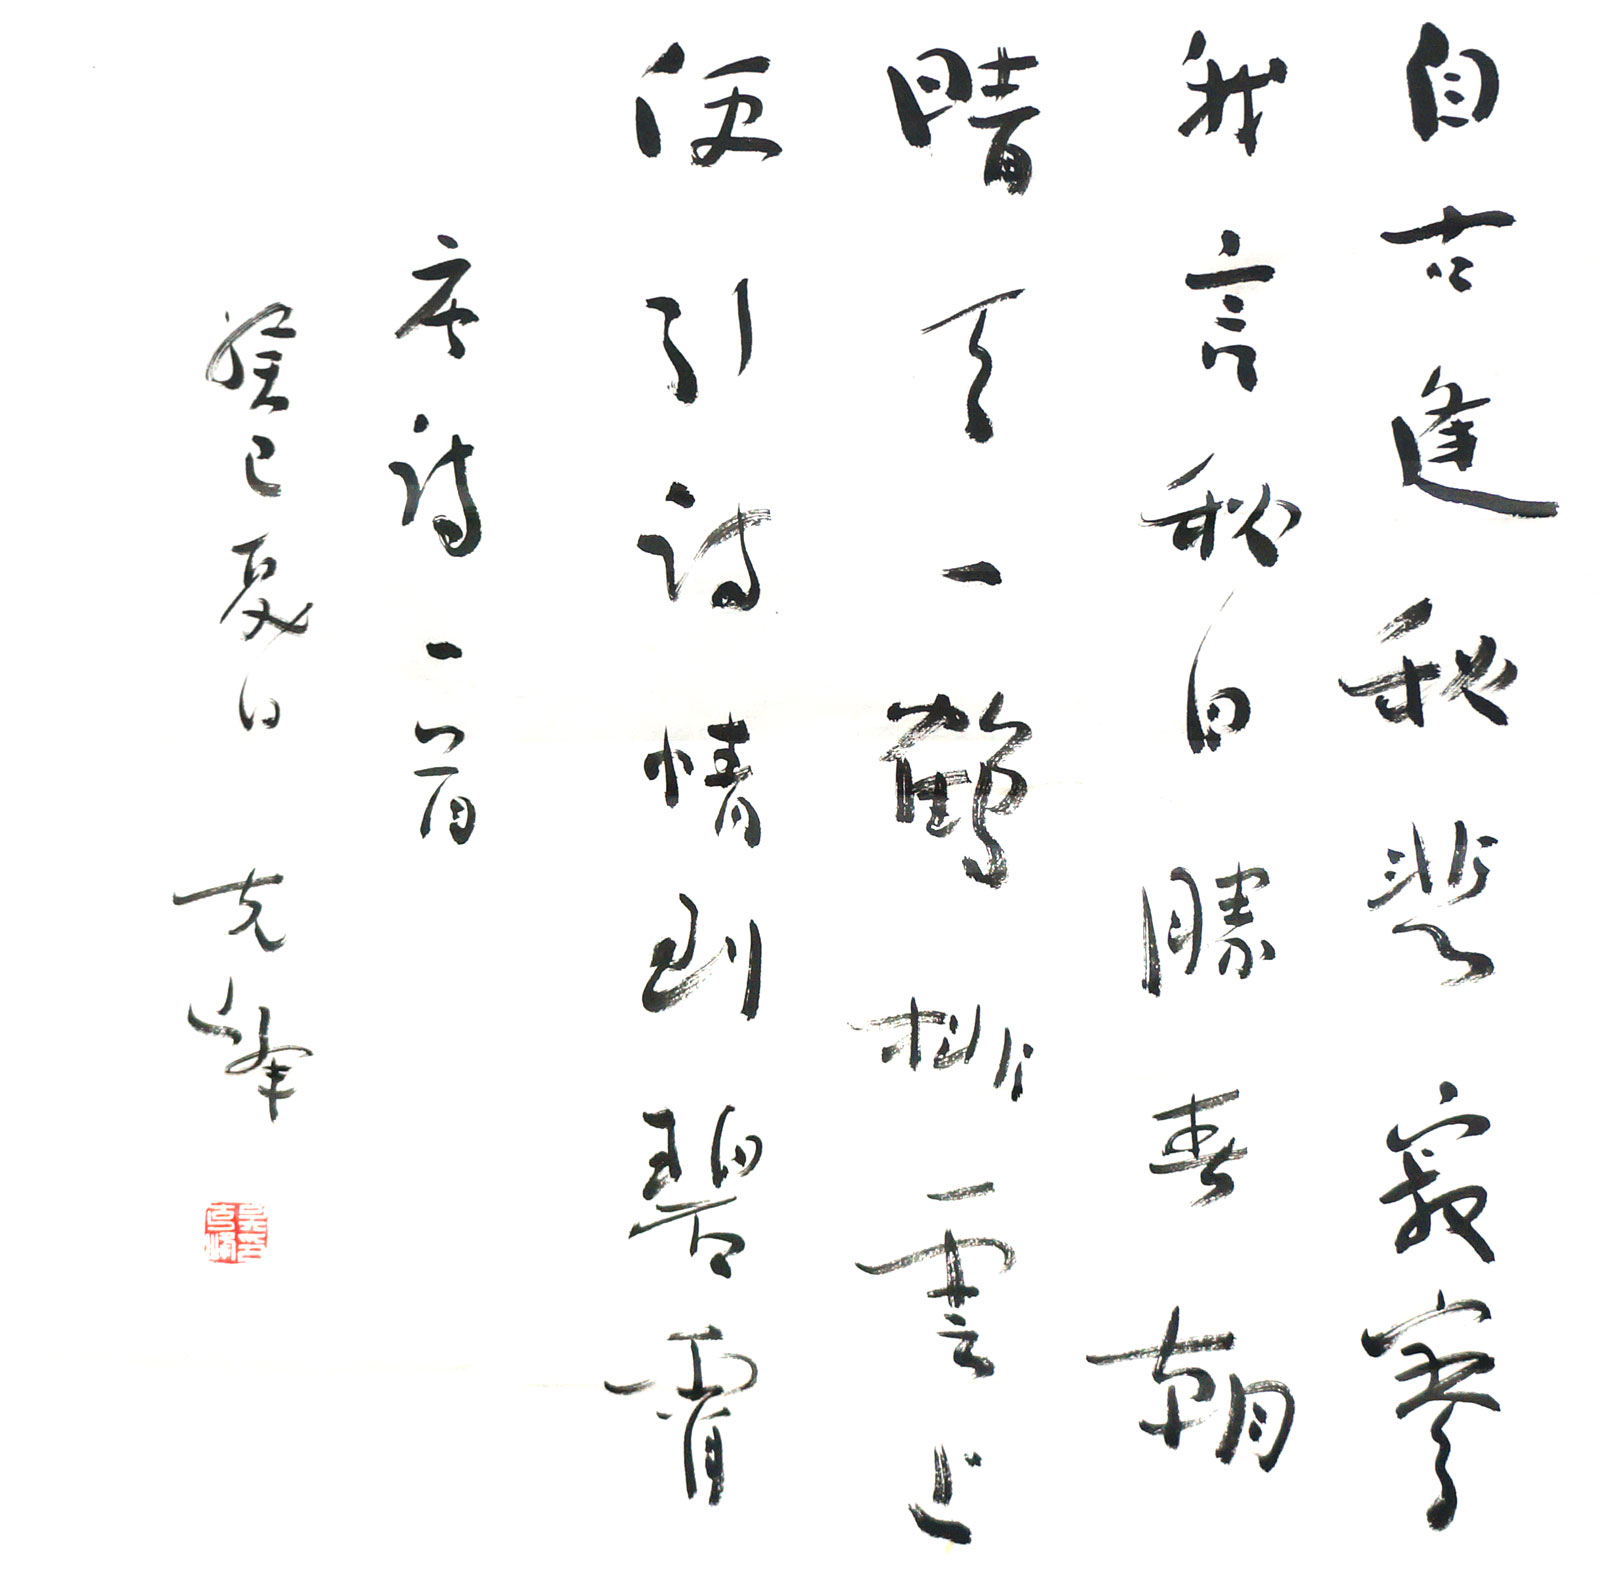 自古逢秋悲寂寥
我言秋日勝春朝
晴空一鶴排雲上
便引詩情到碧霄
唐詩一首
癸巳夏日 克峰